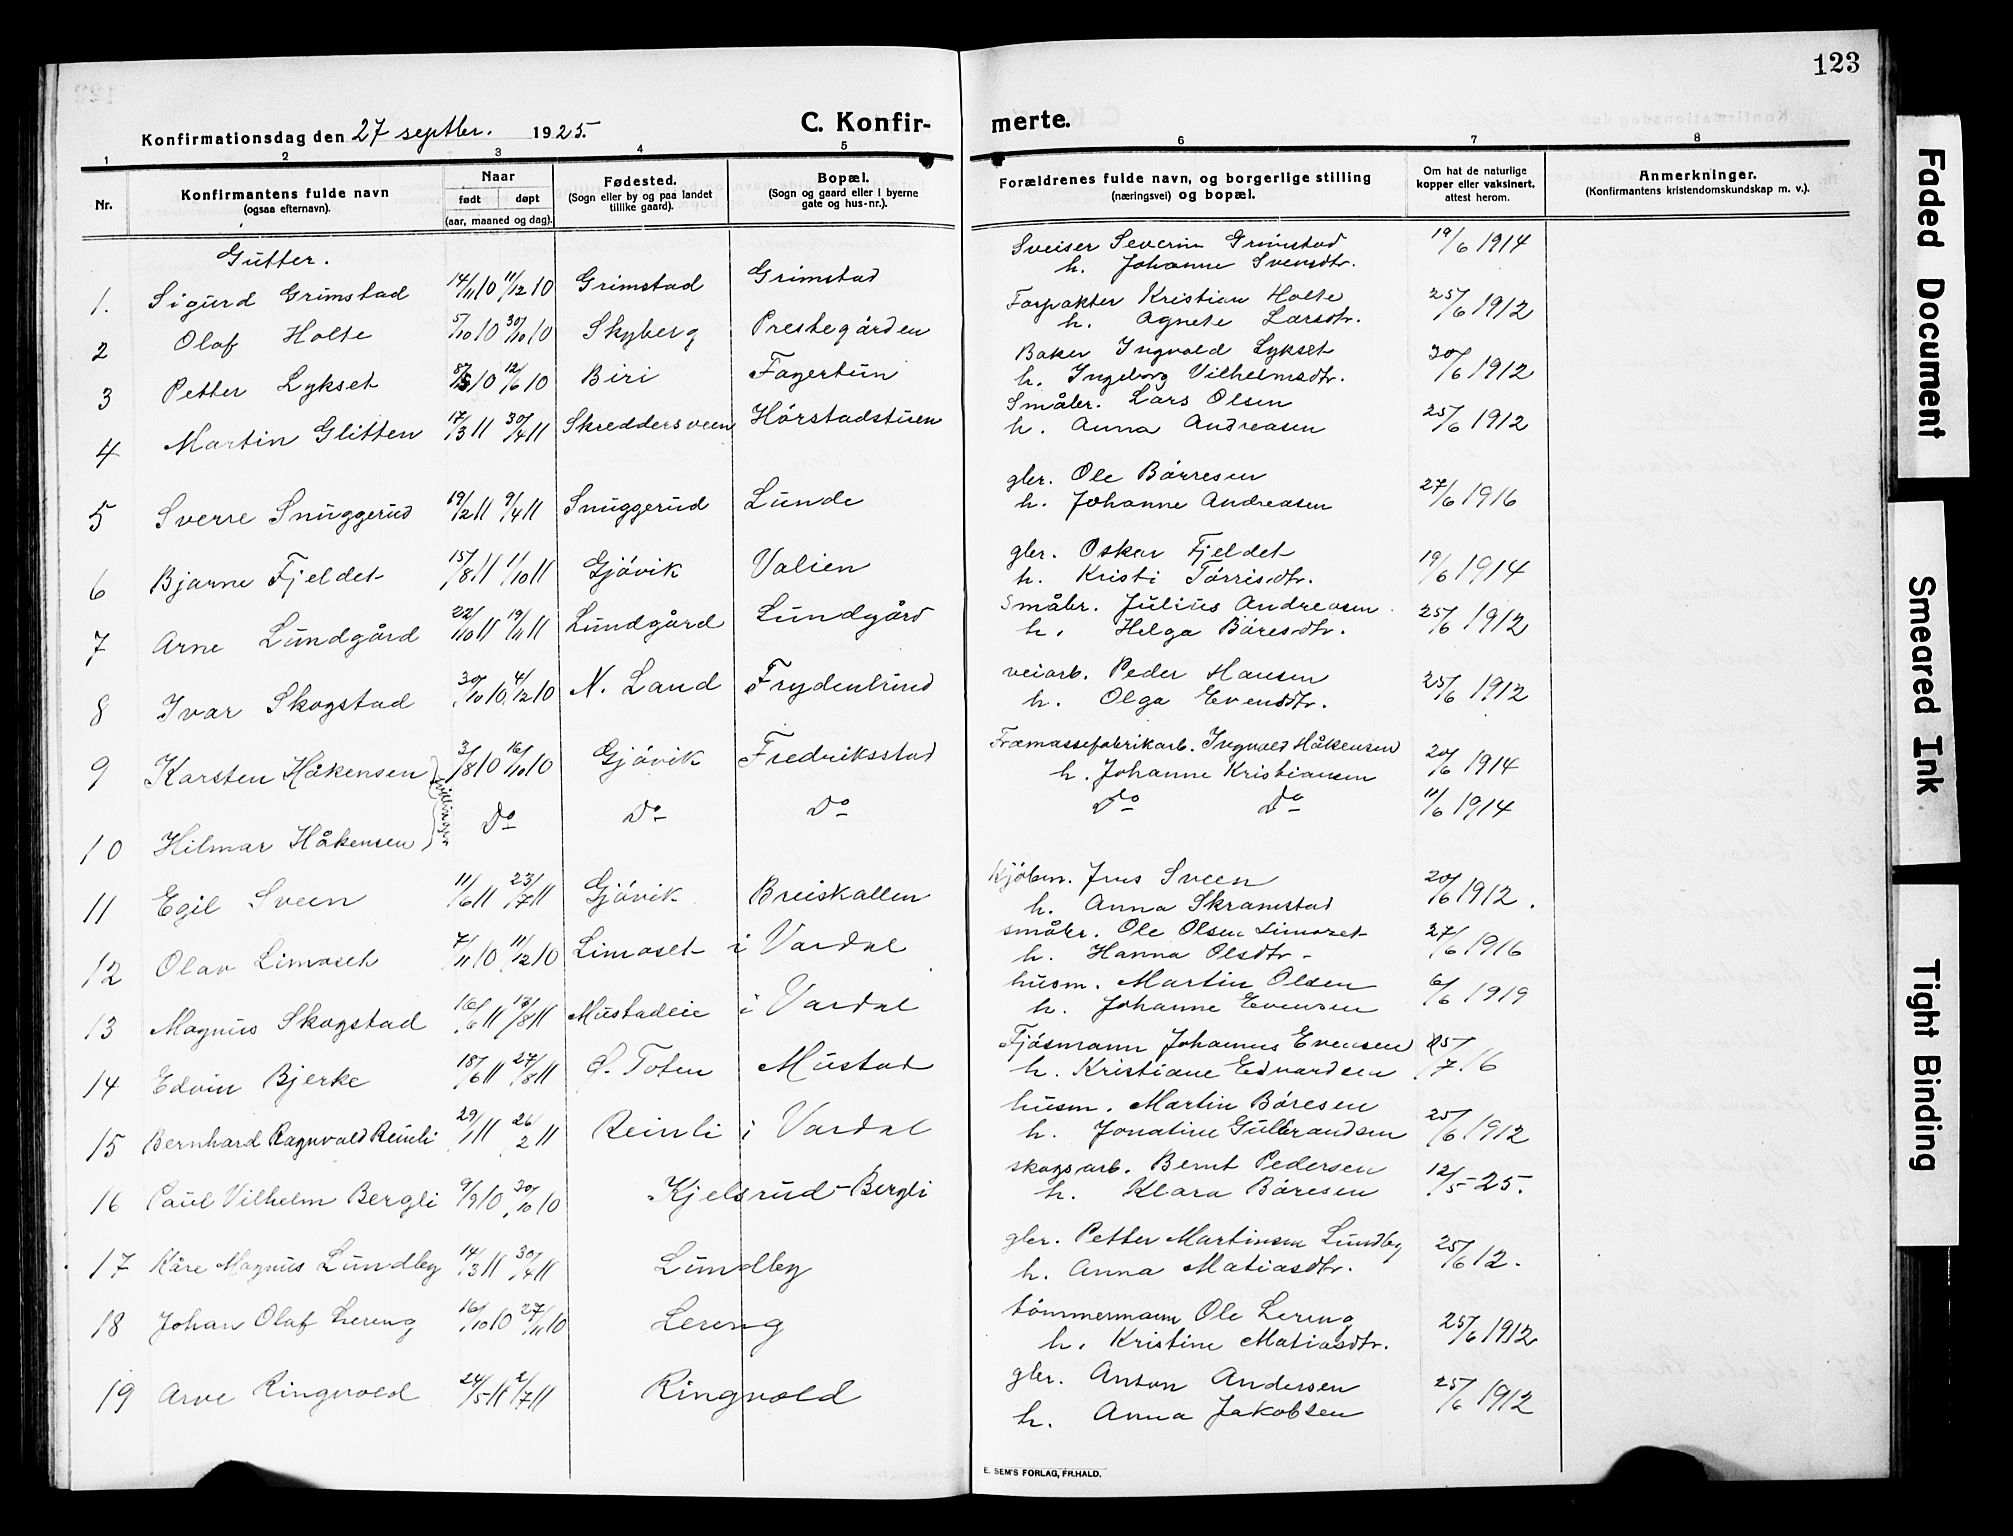 123
Konfirmationsdag den 27 septbr. 1925.
C. Konfir-
merte.
1 2 3 4 5 6 7 8
Nr.
Konfirmantens fulde navn
(ogsaa efternavn).
Naar
født døpt
(aar, maaned og dag).
Fødested.
(Sogn eller by og paa landet
tillike gaard).
Bopæl.
(Sogn og gaard eller i byerne
gate og hus-nr.).
Forældrenes fulde navn, og borgerlige stilling
(næringsvei) og bopæl.
Om hat de naturlige
kopper eller vaksinert,
attest herom.
Anmerkninger.
(Konfirmantens kristendomskundskap m. v.).
Gutter.
1. Sigurd Grimstad 14/11 10 11/12 10 Grimstad Grimstad Sveiser Severin Grimstad 19/6 1914
h. Johanne Svensdtr.
2 Olaf Holte 5/10 10 30/10 10 Skyberg Prestegården Forpakter Kristian Holte 25/6 1912
h. Agnete Larsdtr.
3 Petter Lykset 10 12/6 10 Biri Fagertun Baker Ingvald Lykset 30/6 1912
h. Ingeborg Vilhelmsdtr.
4 Martin Glitten 17/3 11 30/4 11 Skreddersveen Hørstadstuen Småbr. Lars Olsen 25/6 1912
h. Anna Andreasen
5 Sverre Snuggerud 19/2 11 9/4 11 Snuggerud Lunde gbr. Ole Børresen 27/6 1916
h. Johanne Andreasen
6 Bjarne Fjeldet 15/8 11 1/10 11 Gjøvik Valien gbr. Oskar Fjeldet 19/6 1914
h. Kristi Tørrisdtr.
7 Arne Lundgård 22/10 11 19/11 11 Lundgård Lundgård Småbr. Julius Andreasen 25/6 1912
h. Helga Børesdtr.
8 Ivar Skogstad 30/10 10 4/12 10 N. Land Frydenlund veiarb. Peder Hansen 25/6 1912
h. Olga Evensdtr.
9 Karsten Håkensen 3/8 10 16/10 10 Gjøvik Fredriksstad Træmassefabrikarb. Ingvald Håkensen 20/6 1914
h. Johanne Kristiansen
tvillinger
10 Hilmar Håkensen Do Do Do Do Do 11/6 1914
11 Egil Sveen 11/6 11 23/7 11 Gjøvik Breiskallen Kjøbm. Jens Sveen 20/6 1912.
h. Anna Skramstad
12 Olav Limoseth 7/11 10 11/12 10 Limoset i Vardal småbr. Ole Olsen Limoset 27/6 1916
h. Hanna Olsdtr.
13 Magnus Skogstad 16/6 11 13/8 11 Mustadeie i Vardal husm. Martin Olsen 6/6 1919
h. Johanne Evensen
14 Edvin Bjerke 18/6 11 27/8 11 Ø. Toten Mustad Fjøsmann Johannes Evensen 15/7 16
h. Kristiane Edvardsen
15 Bernhard Ragnvald Reinli 29/1 11 26/2 11 Reinli i Vardal husm. Martin Børesen 25/6 1912
h. Jonatine Gulbrandsen
16 Paul Vilhelm Bergli 9/9 10 30/10 10 Kjelsrud-Bergli skogsarb. Bernt Pedersen 12/5-25.
h. Klara Børesen
17 Kåre Magnus Lundby 14/3 11 30/4 11 Lundby gbr. Petter Martinsen Lundby 25/6 12.
h. Anna Matiasdtr.
18 Johan Olaf Lereng 16/10 10 27/11 10 Lereng tømmermann Ole Lereng 25/6 1912
h. Kristine Matiasdtr.
19 Arve Ringvold 24/5 11 2/7 11 Ringvold gbr. Anton Andersen 25/6 1912
h. Anna Jakobsen
E. SEM'S FORLAG, FR.HALD.
Faded Document
Smeared Ink
Tight Binding